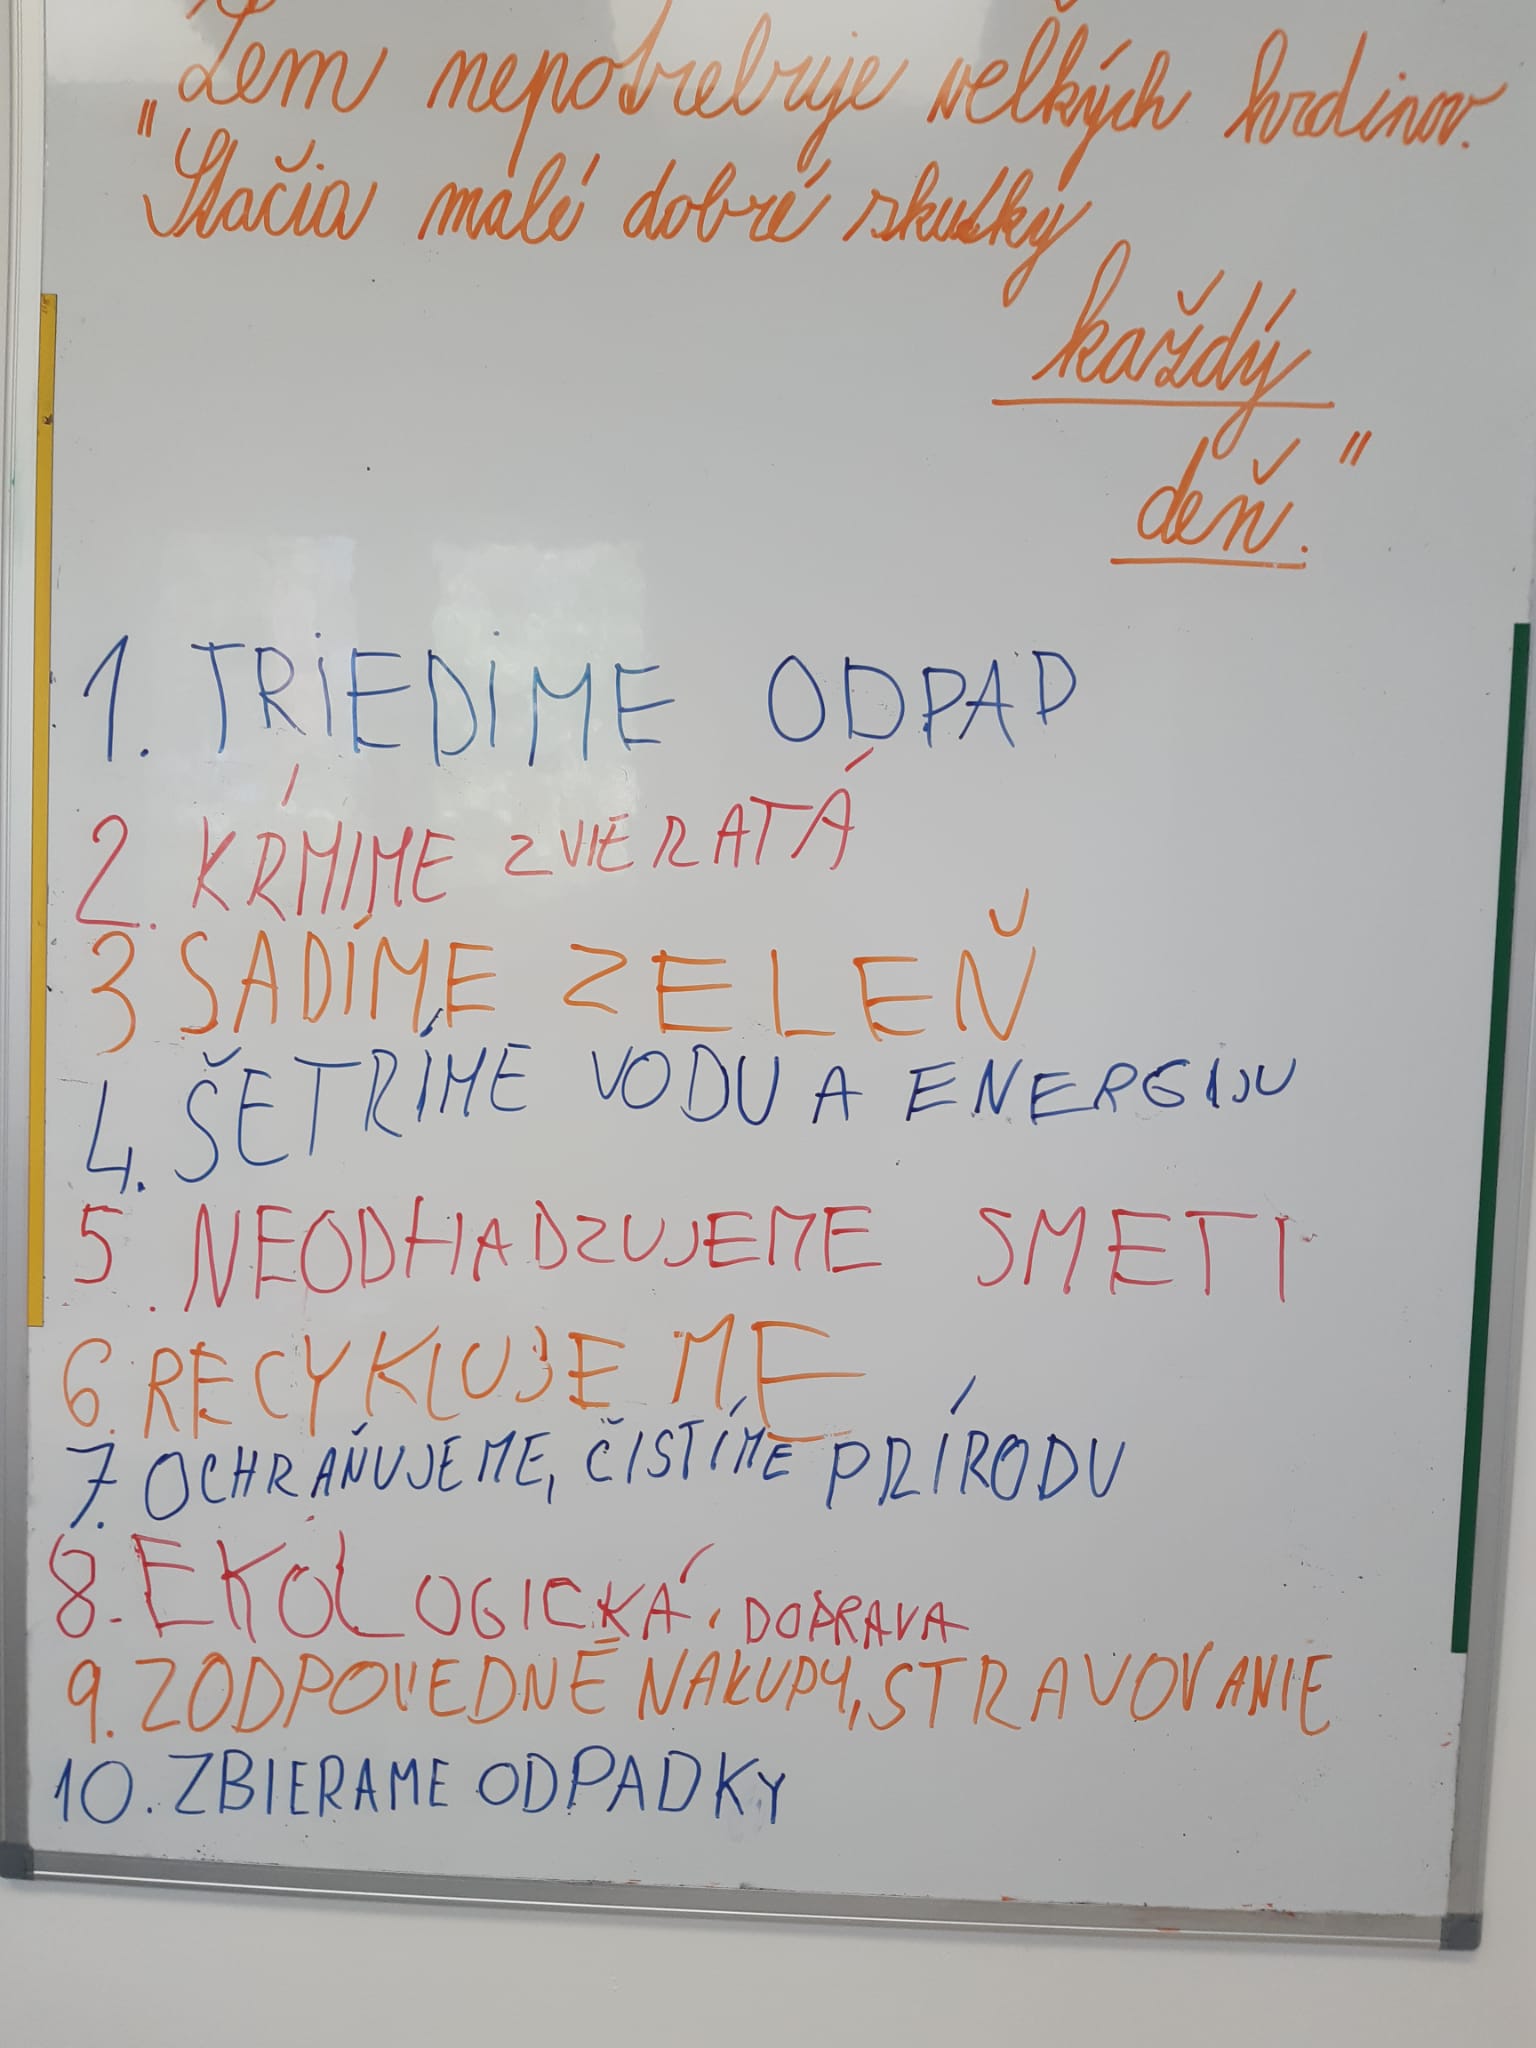 Zem nepotrebuje veľkých hrdinov.
"Stačia malé dobré skutky
každý
deň."
1. TRIEDIME ODPAD
2. KŔMIME ZVIERATÁ
3 SADÍME ZELEŇ
4. ŠETRÍME VODU A ENERGIJU
5. NEODHADZUJEME SMETI
6. RECYKLUJEME
7. OCHRAŇUJEME, ČISTÍME PRÍRODU
8. EKOLOGICKÁ DOPRAVA
9. ZODPOVEDNÉ NAKUPY, STRAVOVANIE
10. ZBIERAME ODPADKY